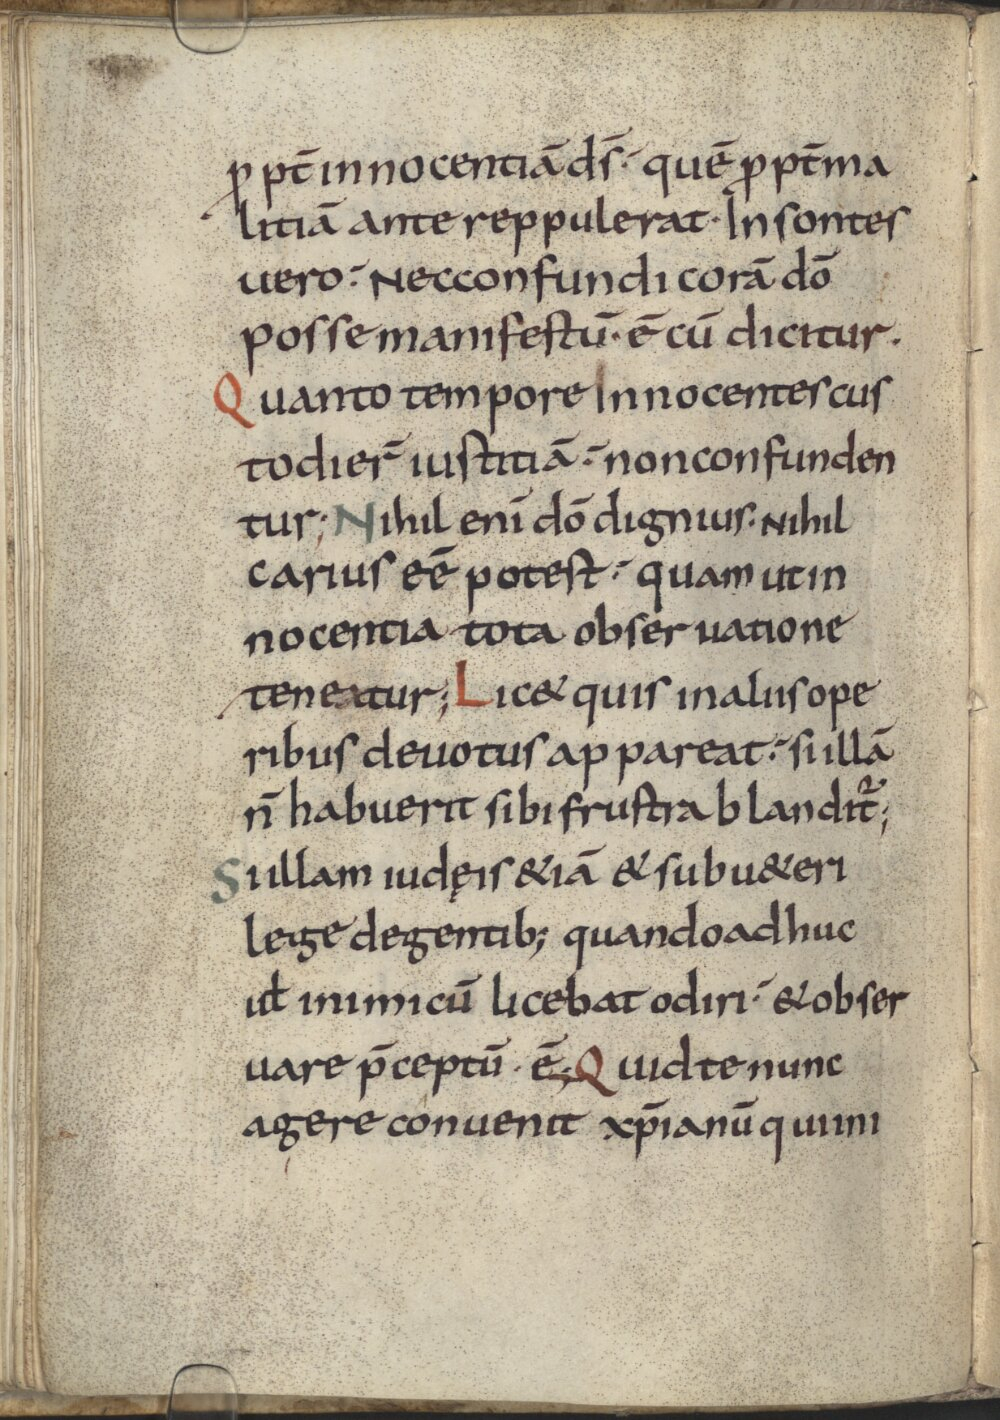 ꝓpt̄ innocentiā ds̄· quē ꝓpt̄ ma
litiā ante reppulerat· Insontes
uero· Nec confundi corā dō
posse manifestū· ē cū dicitur·
Quanto tempore Innocentes cus
todier̄ iustitiā· non confunden
tur; Nihil enī dō dignius· Nihil
carius eē potest· quam ut in
nocentia tota obseruatione
teneatur; Lic& quis in aliis ope
ribus deuotus appareat· si illā
n̄ habuerit sibi frustra blandit᷑;
Si illam iudęis &iā & sub u&eri
lege degentib; quando adhuc
ill inimicū licebat odiri· & obser
uare p̄ceptū· ē; Quid te nunc
agere conuenit xp̄ianū qui ini